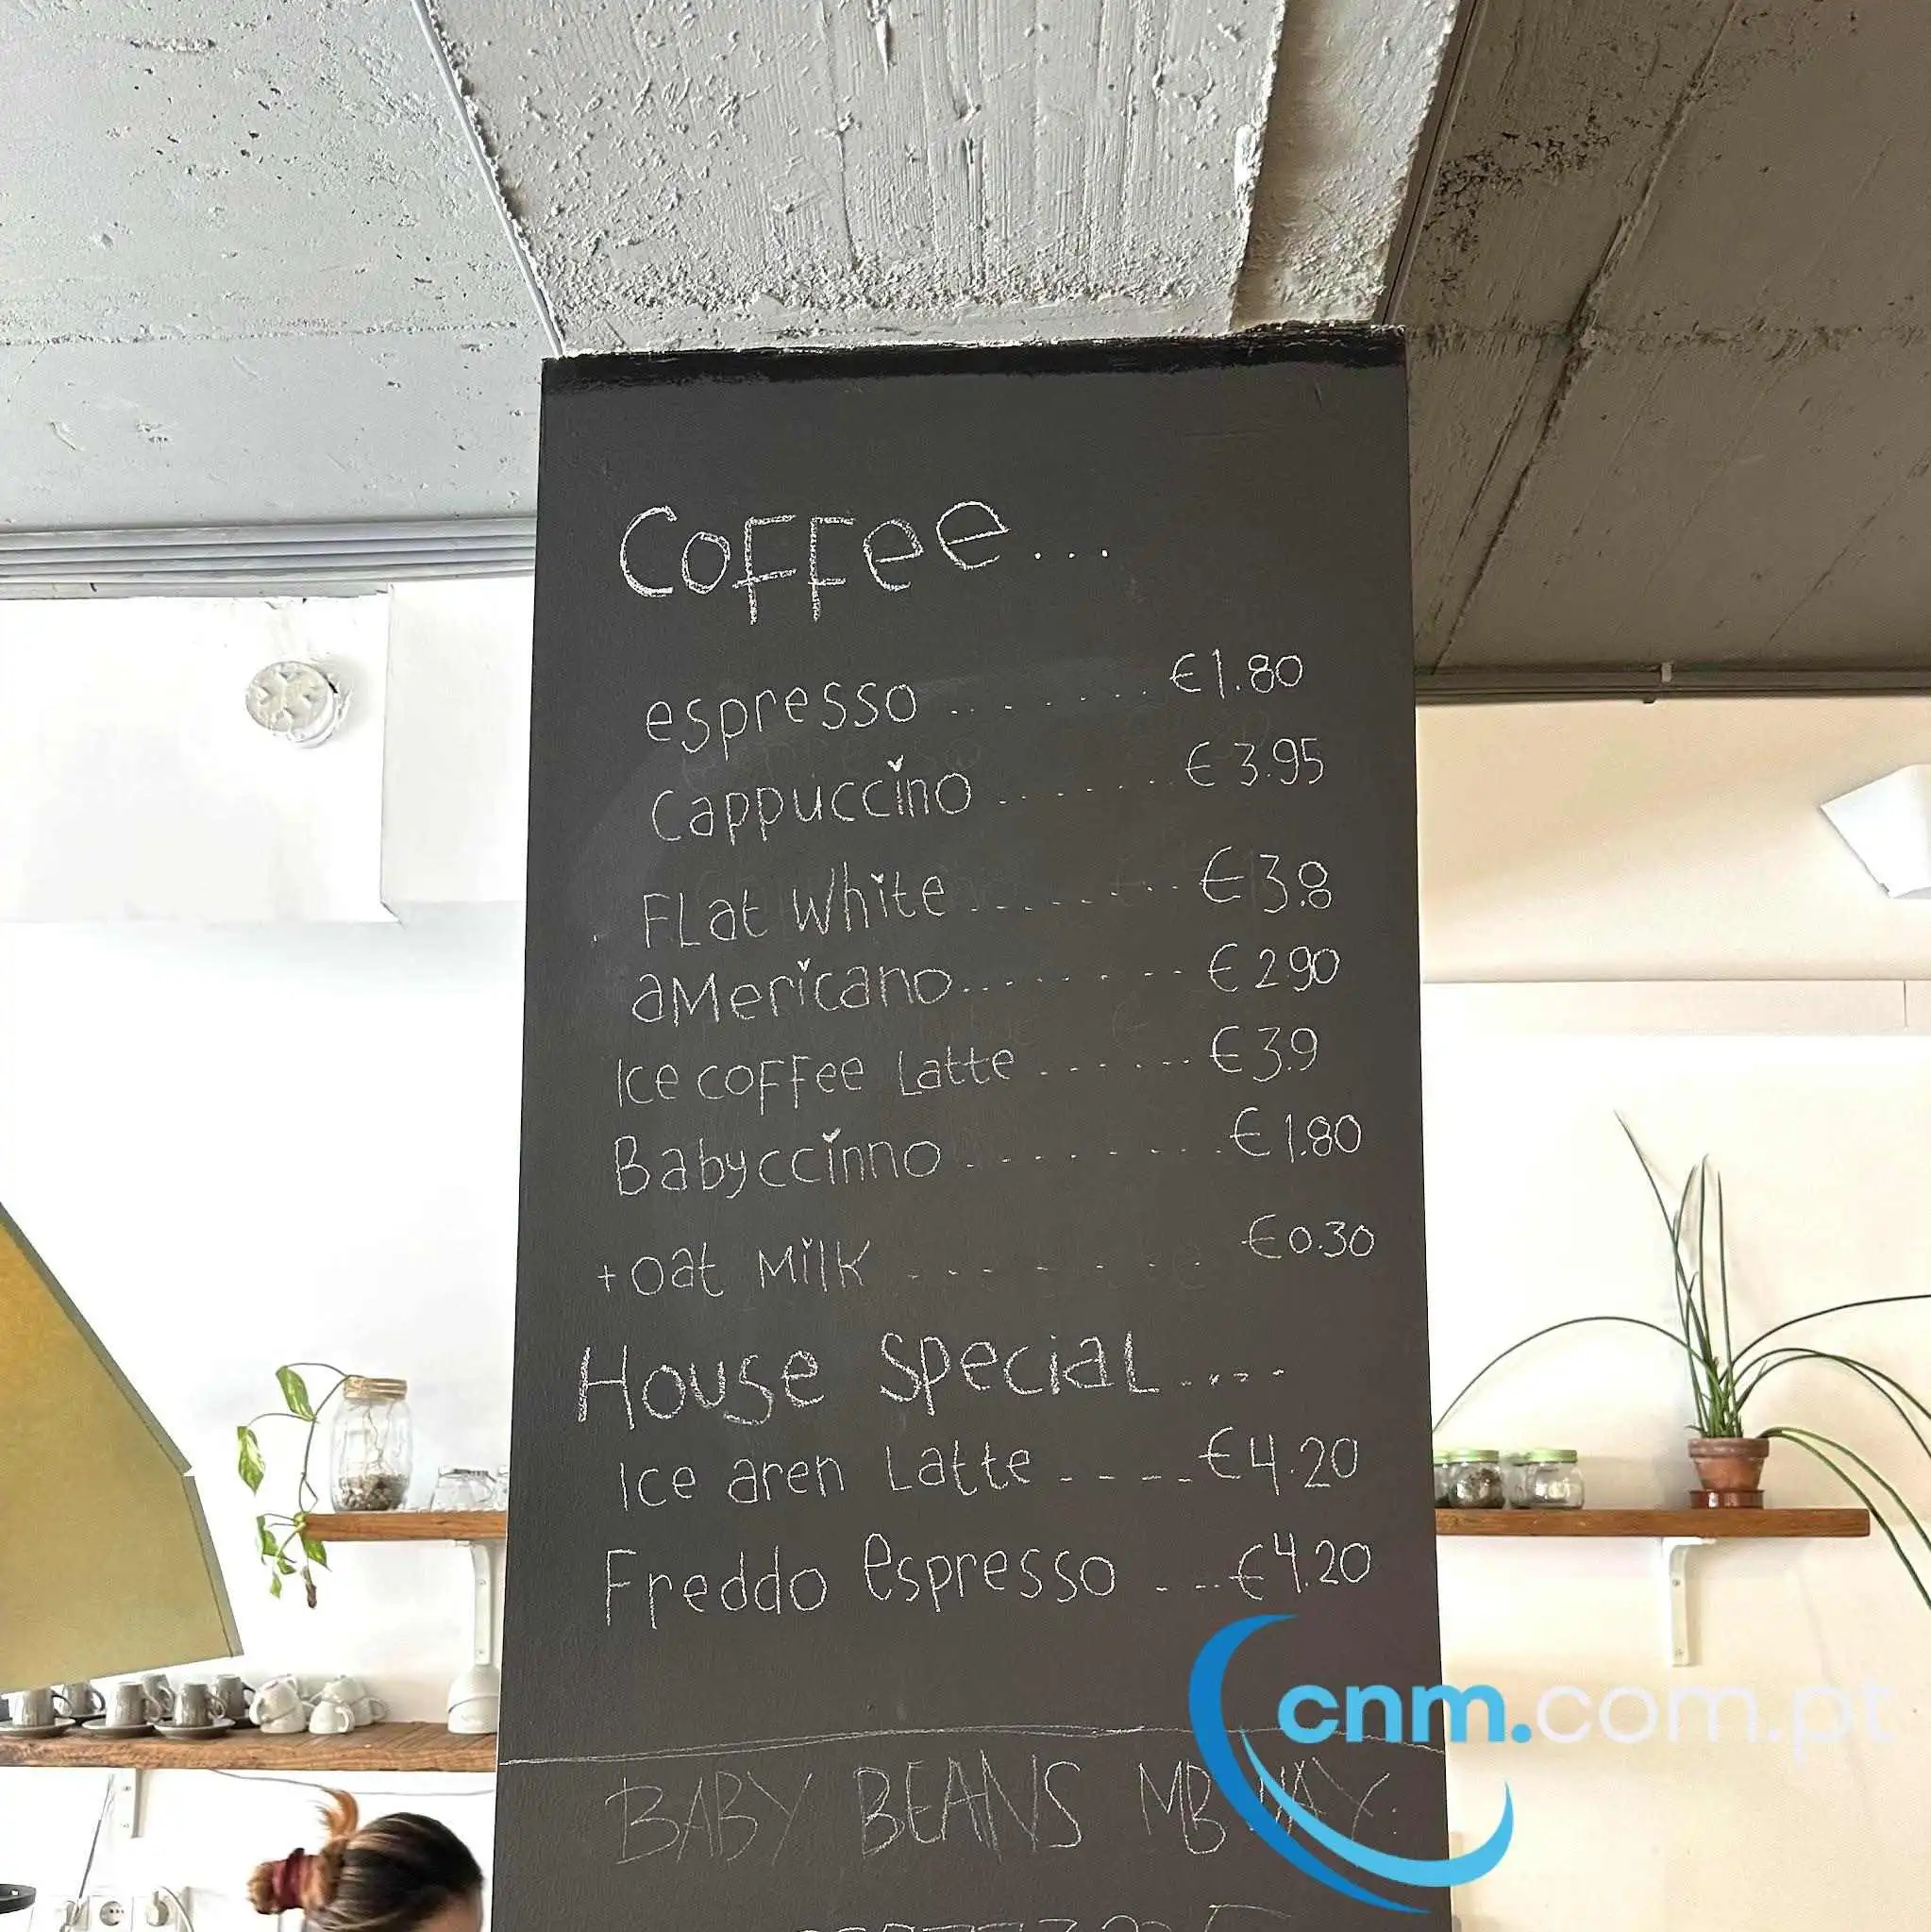 Coffee...
espresso ........ €1.80
Cappuccino ....... €3.95
FLat White ........ €3.8
aMericano ........ €2.90
Ice coffee Latte ...... €3.9
Babyccinno ........ €1.80
+ oat Milk ........ €0.30
House Special ....
Ice aren Latte ---- €4.20
Freddo espresso --- €4.20
cnm.com.pt
BABY BEANS MB WAY: